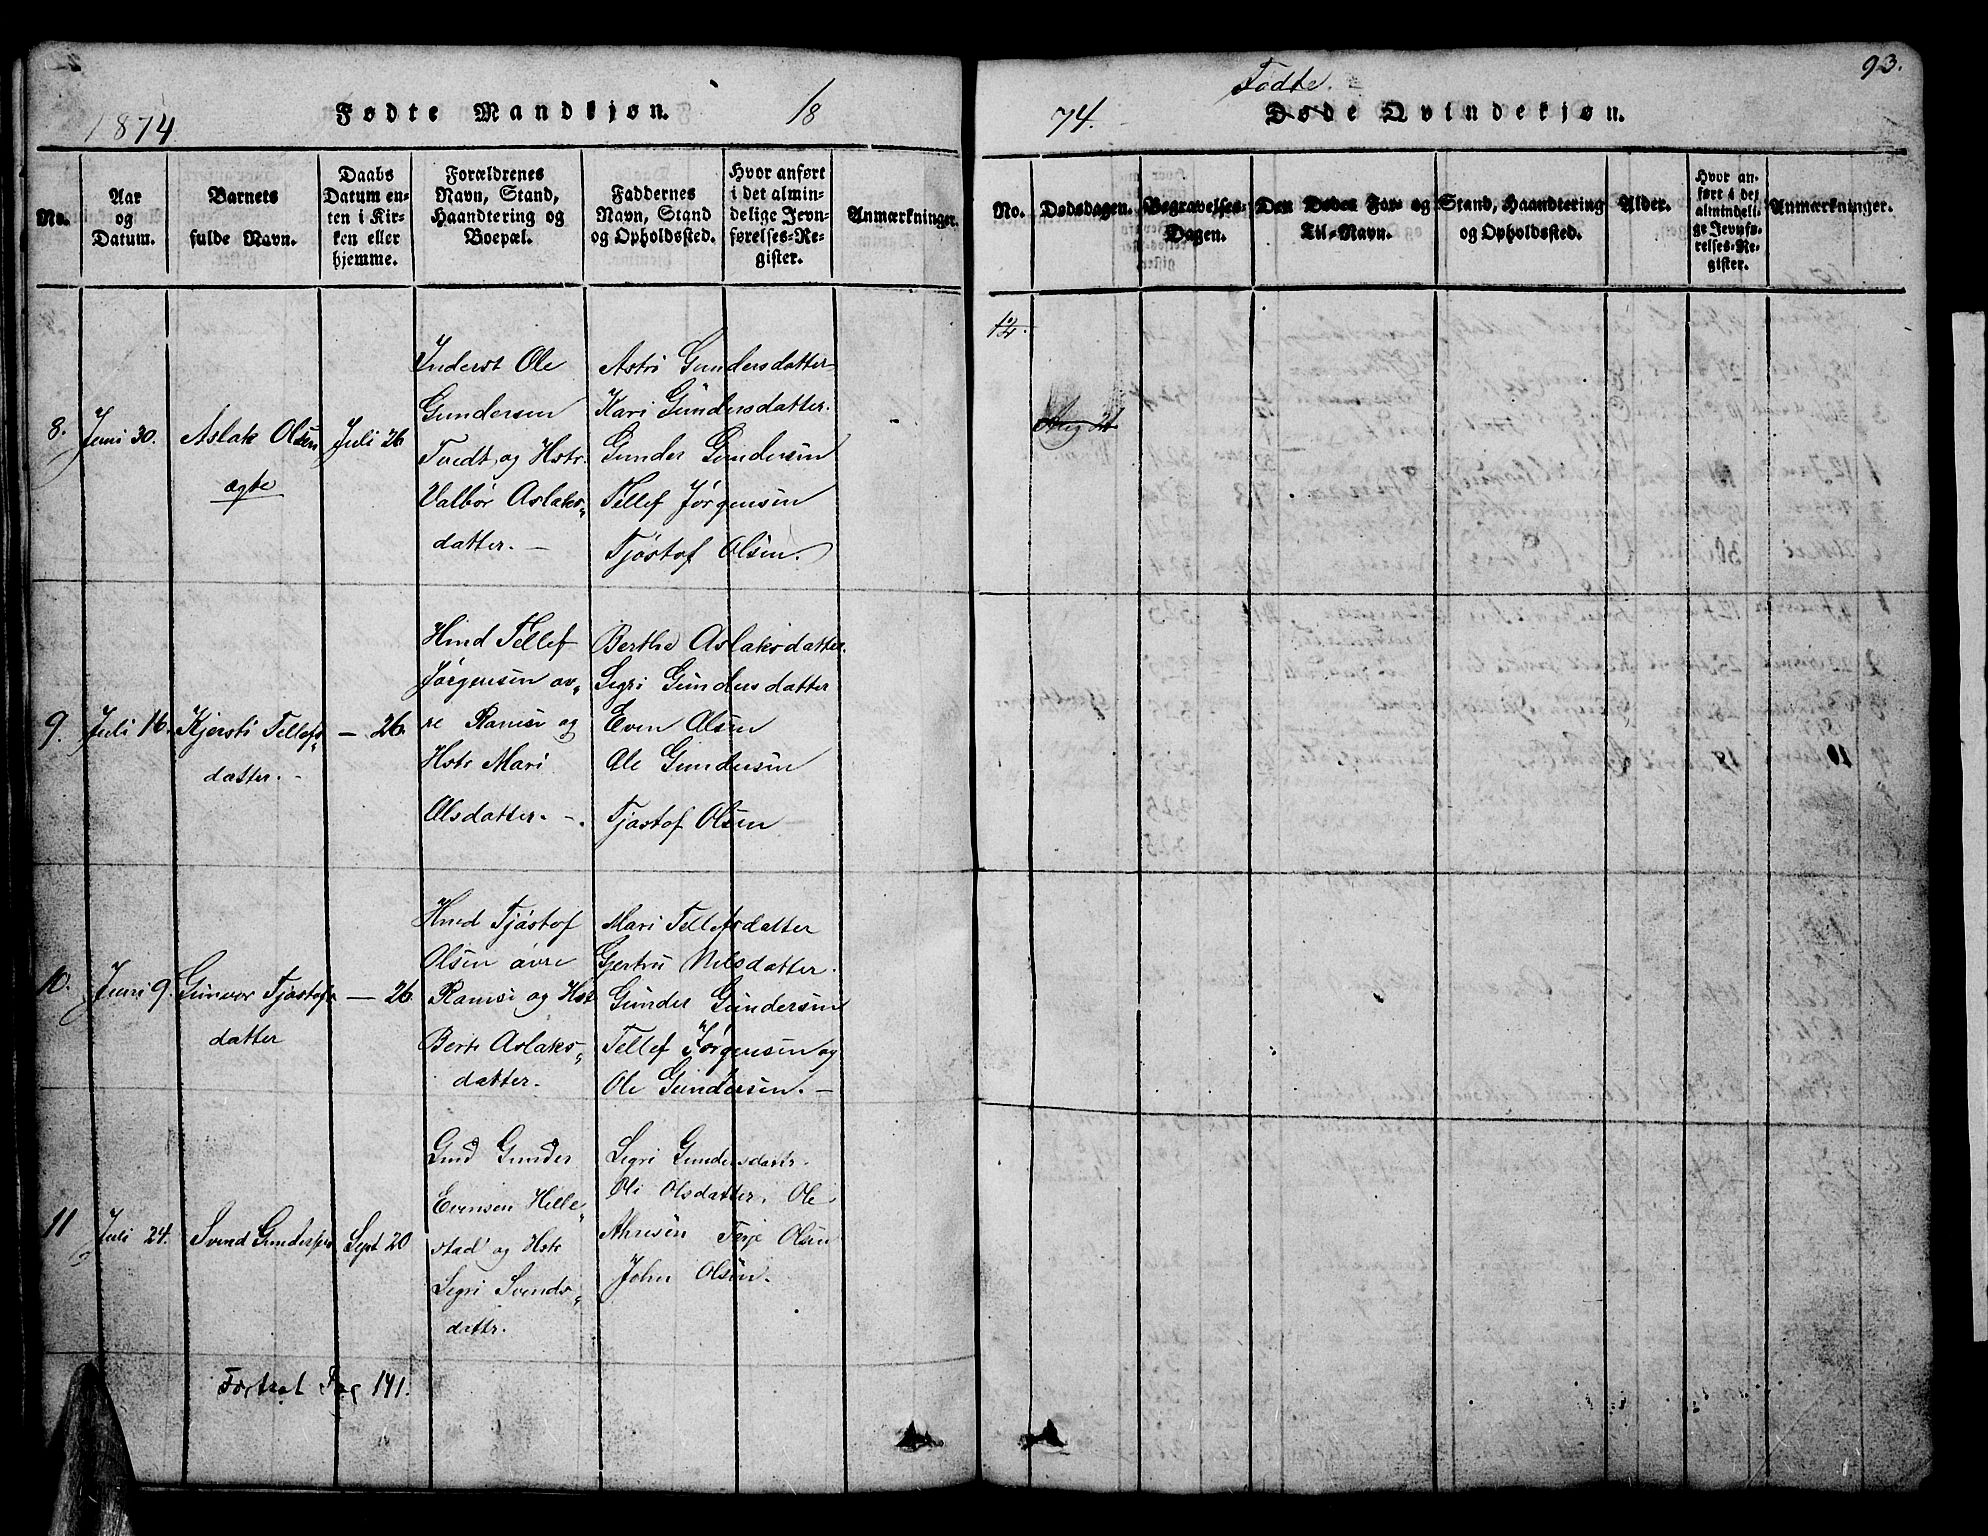 93.
Fødte Mandkjøn. 18
1874
No.
Aar
og
Datum.
Barnets
fulde Navn.
Daabs
Datum en-
ten i Kir-
ken eller
hjemme.
Forældrenes
Navn, Stand,
Haandtering og
Boepæl.
Faddernes
Navn, Stand
og Opholdssted.
Hvor anført
i det almin-
delige Jevn-
førelses-Re-
gister.
Anmærkninger.
8.
Juni 30.
Aslak Olsen
ægte
Juli 26
Inderst Ole
Gundersen
Tvedt og Hstr.
Valbør Aslaks„
datter. —
Astri Gundersdatter
Kari Gundersdatter.
Gunder Gundersen
Tellef Jørgensen
Tjøstof Olsen.
9.
Juli 16.
Kjersti Tellefs„
datter. -
— 26.
Hmd Tellef
Jørgensen øv„
re Ramse og
Hstr Mari
Olsdatter. -.
Berthe Aslaksdatter.
Segri Gundersdatter
Even Olsen
Ole Gundersen
Tjøstof Olsen
10.
Juni 9.
Gunvor Tjøstofs
datter
— 26.
Hmd Tjøstof
Olsen øvre
Ramse og Hst
Berte Aslaks„
datter.
Mari Tellefsdatter
Gjertru Nilsdatter.
Gunder Gundersen
Tellef Jørgensen og
Ole Gundersen. —
11
Juli 24.
Svend Gundersen
Sept 20
Gmd Gunder
Evensen Hille„
stad og Hstr
Segri Svends„
dattr.
Segri Gundersdattr.
Oli Olsdatter. Ole
Terje Olsen
John Olsen.
Fortsat Pag 141.
74. Fødte.
Døde Qvindekjøn.
No.
Dødsdagen.
Begravelses-
Dagen.
Den Dødes For- og
Til-Navn.
Stand, Haandtering
og Opholdssted.
Alder.
Hvor an-
ført i det
almindeli-
ge Jevnfø-
relses-Re-
gister.
Anmærkninger.
12.
Aug 21